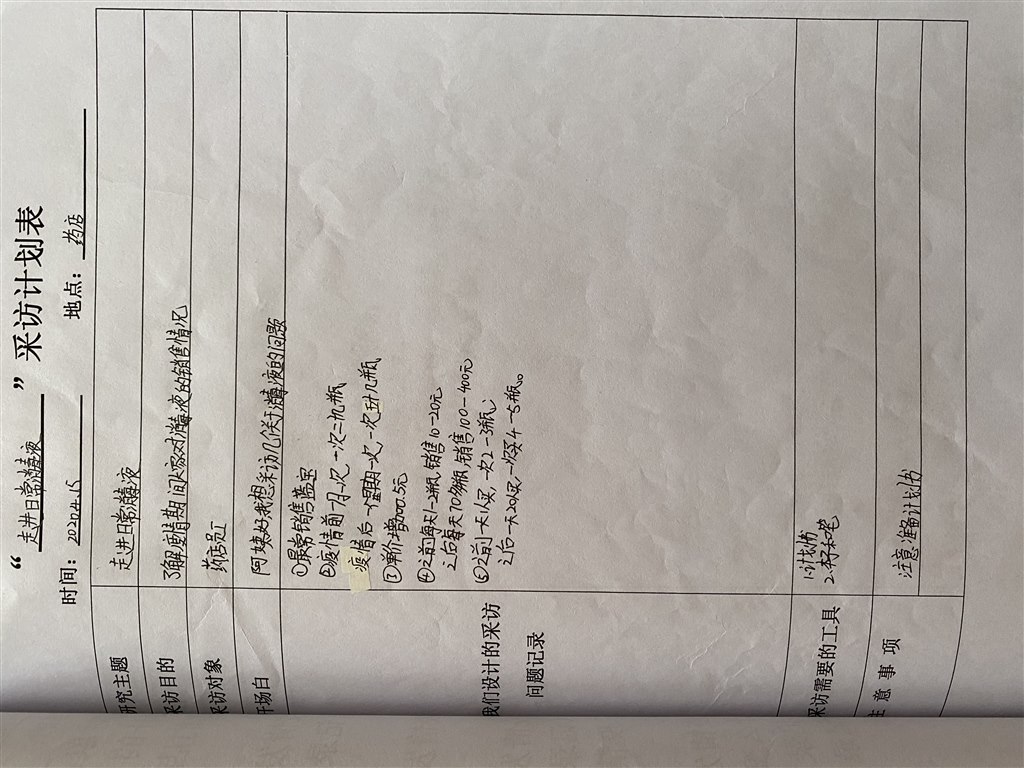 “走进日常消毒液”采访计划表
时间：2020.4.15 地点：药店
研究主题 走进日常消毒液
采访目的 了解疫情期间大家对消毒液的销售情况
采访对象 药店员工
开场白 阿姨好我想采访几个关于消毒液的问题
我们设计的采访
问题记录
①最常销售
②疫情前一月一次 一次二九瓶
疫情后一个星期一次，一次 几瓶
③ 增 5元
④之前每天1-2瓶,销售10-20元
之后每天 瓶,销售100-400元
⑤之前一天1人买，一次2-3瓶；
之后一天20人买，一次买4-5瓶。
采访需要的工具
1.计划书
2.本子和笔
注意事项 注意准备计划书